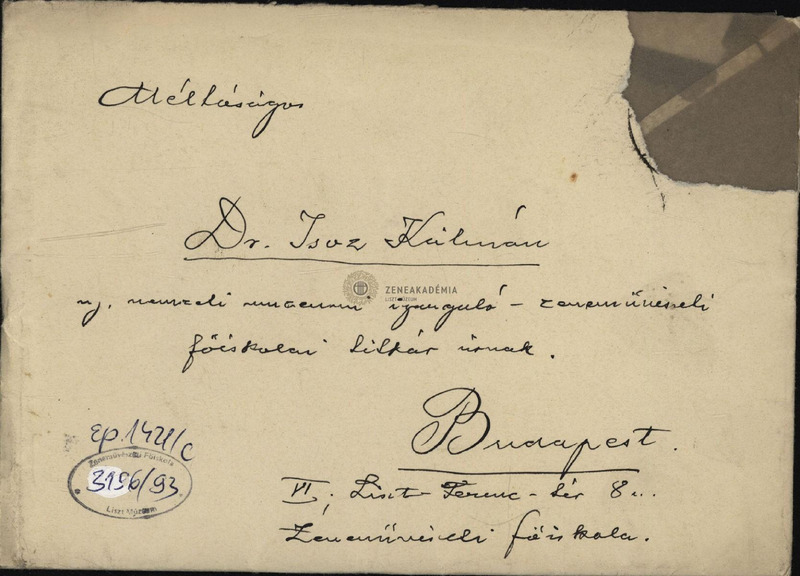 Méltóságos
Dr. Isoz Kálmán
ny. nemzeti muzeumi igazgató – zeneművészeti
főiskolai titkár úrnak.
ZENEAKADÉMIA
LISZT MÚZEUM
Budapest.
VI, Liszt Ferenc-tér 8
Zeneművészeti főiskola.
ep. 1421/c
Zeneművészeti Főiskola
3196/93
Liszt Múzeum